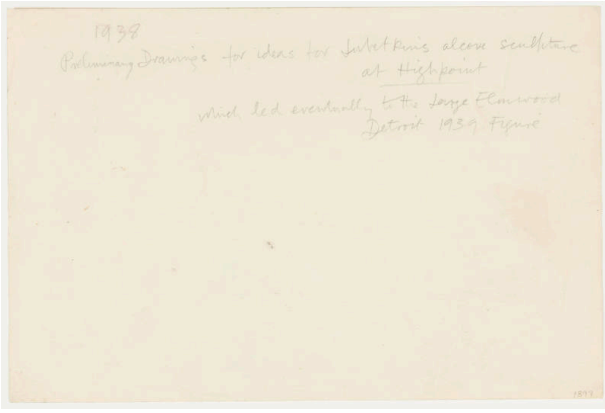 1938
Preliminary Drawings for ideas for Lubetkins alcove sculpture
at Highpoint
which led eventually to the large Elmwood
Detroit 1939 Figure